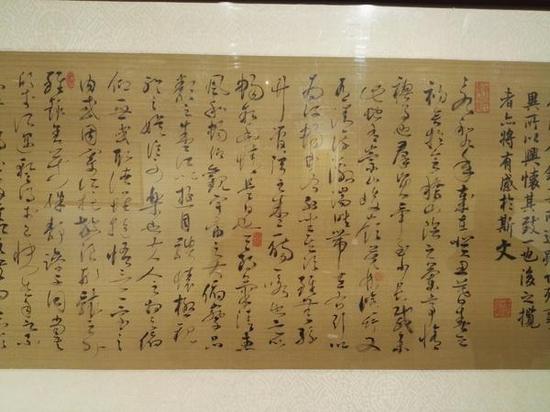 異所以興懷其致一也後之攬
者亦將有感於斯文
永和九年歲在癸丑暮春之
初會於會稽山陰之蘭亭脩
禊事也群賢畢至少長咸集
此地有崇山峻領茂林脩竹又
有清流激湍暎帶左右引以
為流觴曲水列坐其次雖無絲
竹管弦之盛一觴一詠亦足以
暢敘幽情是日也天朗氣清惠
風和暢仰觀宇宙之大俯察品
類之盛所以遊目騁懷足以極視
聽之娛信可樂也夫人之相與俯
仰一世或取諸懷抱悟言一室之
內或因寄所託放浪形骸之外
雖趣舍萬殊靜躁不同當其
欣於所遇暫得於己快然自足